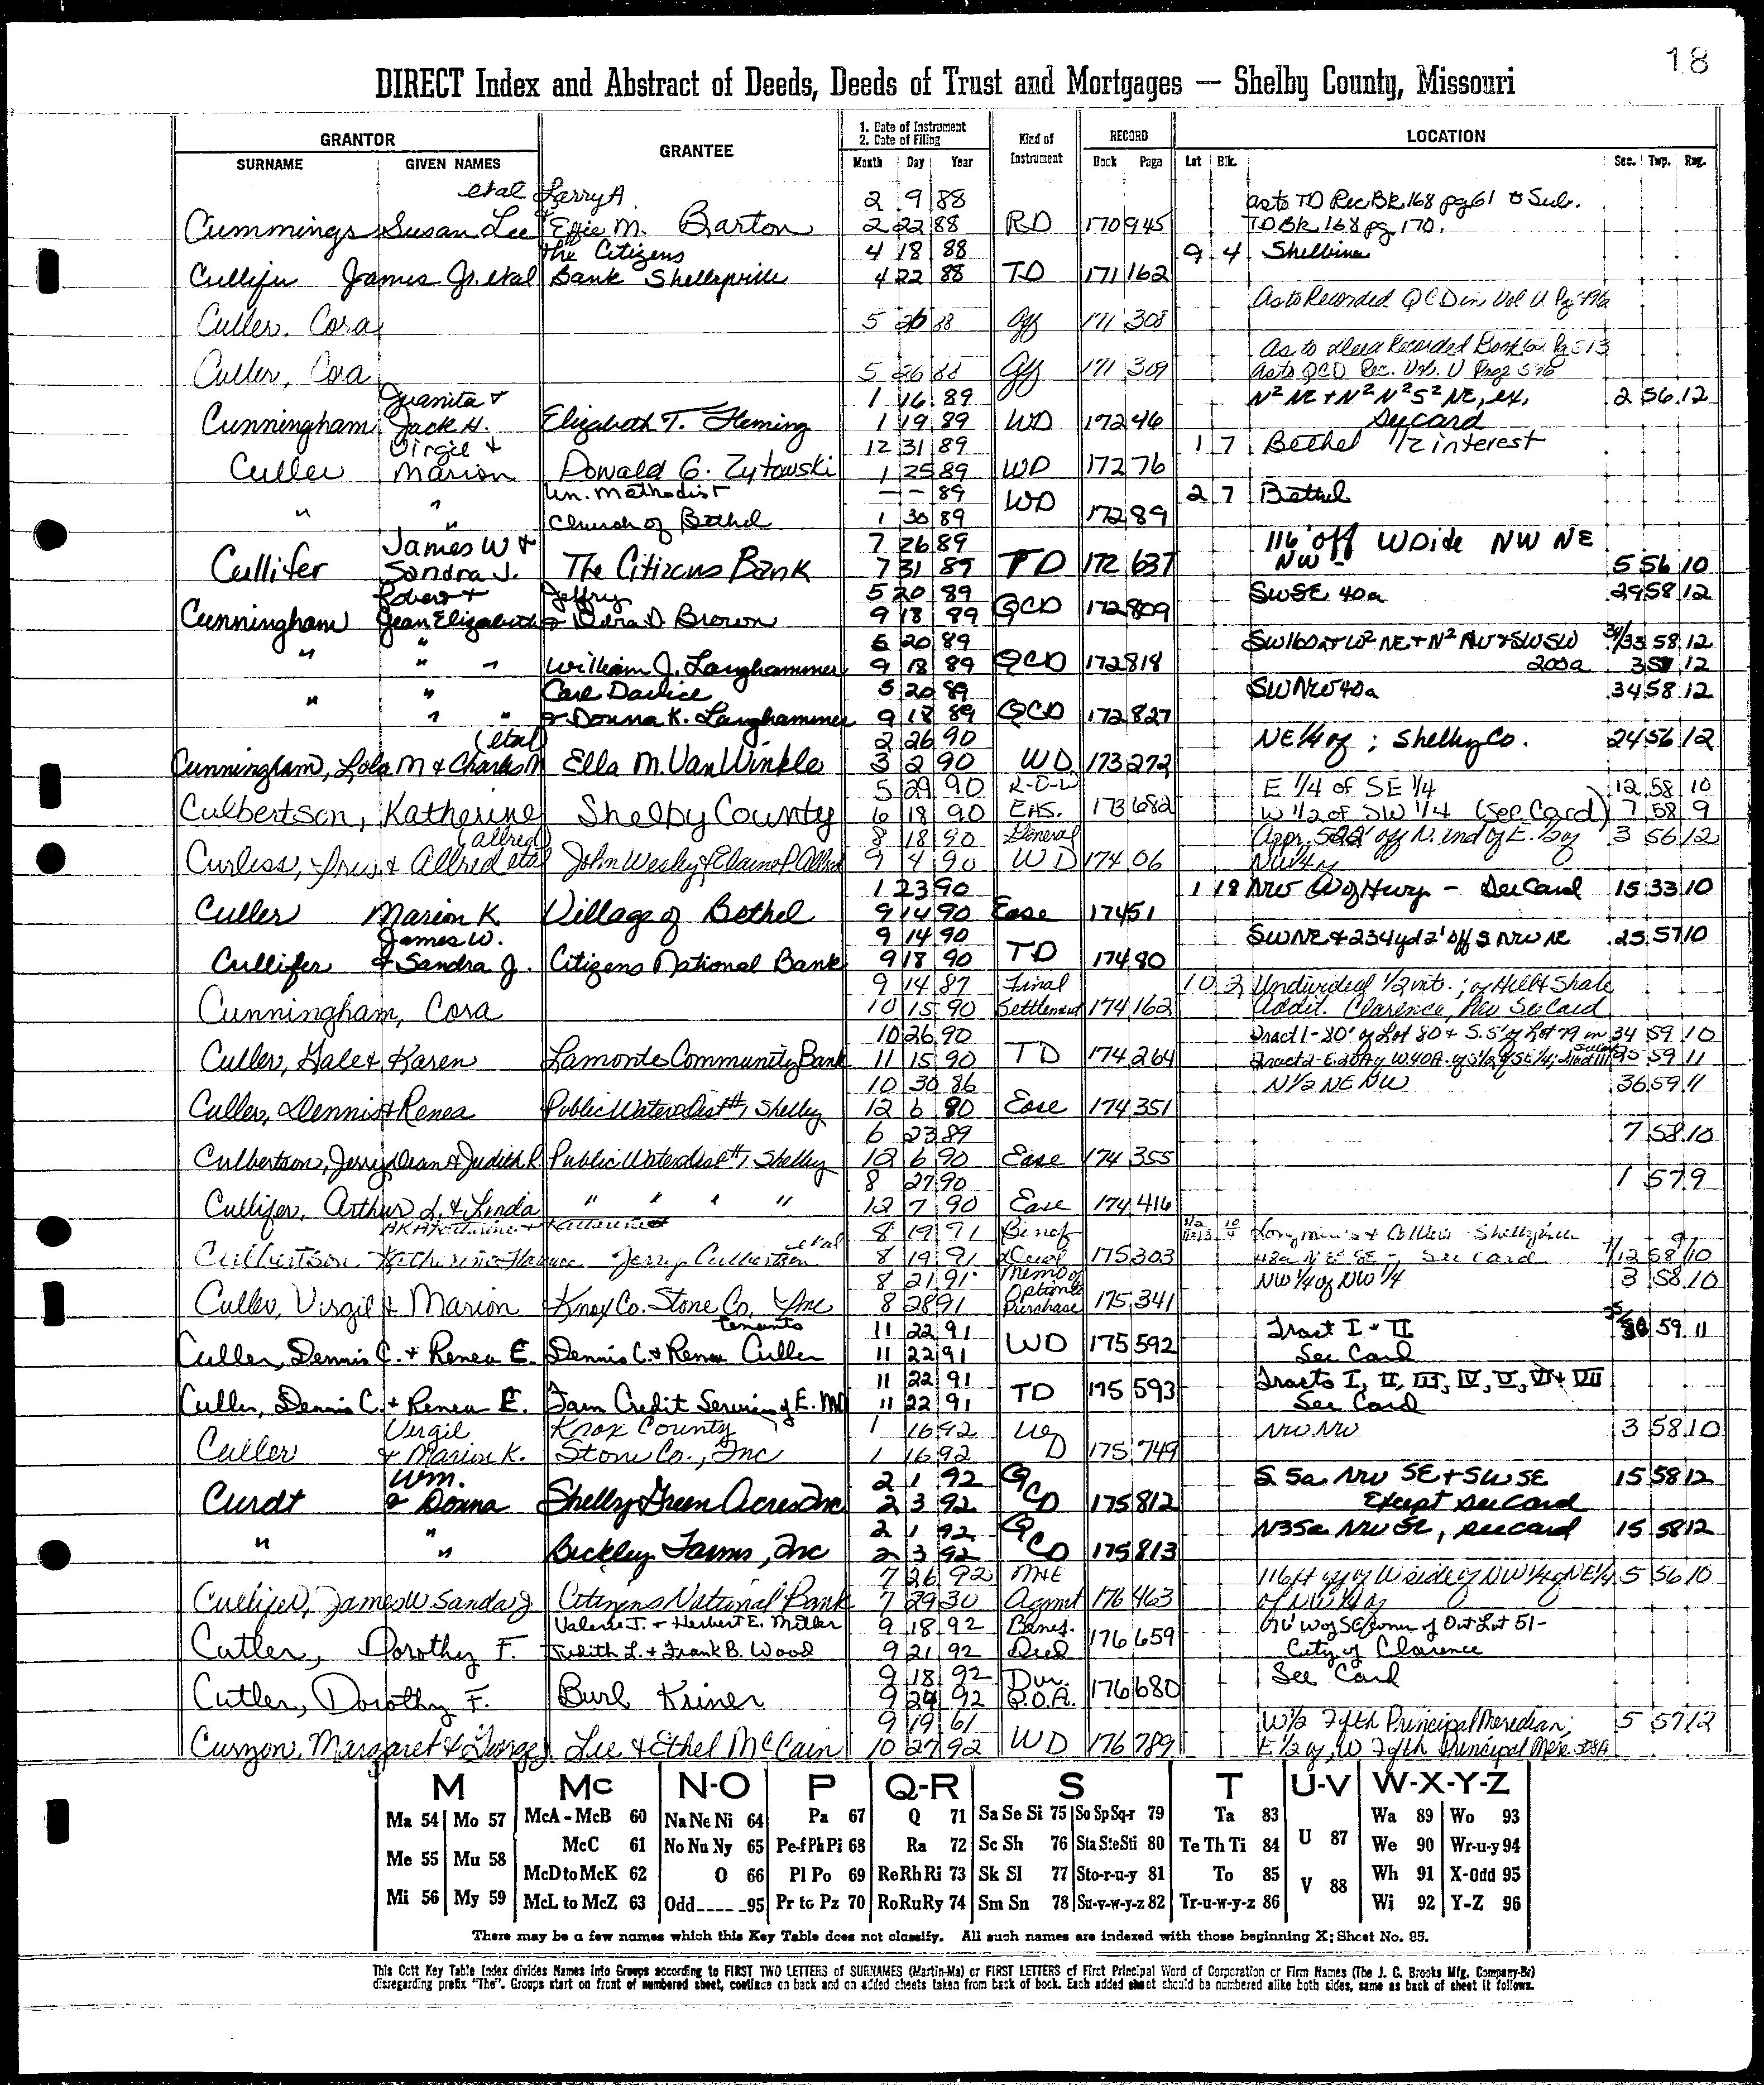 18
DIRECT Index and Abstract of Deeds, Deeds of Trust and Mortgages — Shelby County, Missouri
GRANTOR GRANTEE 1. Date of Instrument 2. Date of Filing Kind of Instrument RECORD LOCATION
SURNAME GIVEN NAMES Month Day Year Book Page Lot Blk. Sec. Twp. Rng.
etal Larry A. 2 9 88 as to TD Rec Bk 168 pg 61 & Sub.
Cummings Susan Lee & Effie M. Barton 2 22 88 RD 170 945 TD Bk 168 pg 170.
The Citizens 4 18 88 9 4 Shelbina
Cullifer James Jr. etal Bank Shelbyville 4 22 88 TD 171 162
As to Recorded QCD in Vol U Pg
Culler, Cora 5 26 88 Aff 171 308
As to deed Recorded Book Pg 513
Culler, Cora 5 26 88 Aff 171 309 as to QCD Rec. Vol. U Page
Juanita & 1 16 89 N² NE & N² N² S² NE, ex. 2 56 12
Cunningham Jack H. Elizabeth T. Fleming 1 19 89 WD 172 46 See card
Virgil & 12 31 89 1 7 Bethel 1/2 interest
Culler Marion Donald G. Zytowski 1 25 89 WD 172 76
" " Un. Methodist — — 89 WD 2 7 Bethel
" Church of Bethel 1 30 89 172 89
James W & 7 26 89 116' off W Side NW NE
Cullifer Sandra J. The Citizens Bank 7 31 89 TD 172 637 NW 5 56 10
Robert & Jeffry 5 20 89 SWSE 40a 29 58 12
Cunningham Jean Elizabeth & Dera D. Brown 9 18 89 QCD 172 809
" " 5 20 89 SW 160a & W² NE & N² NW & SW SW 34/33 58 12
" William J. Langhammer 9 18 89 QCD 172 818 200a 3 57 12
" " Carl Davice 5 20 89 SWNW 40a 34 58 12
" " & Donna K. Langhammer 9 18 89 QCD 172 827
(etal 2 26 90 NE 1/4 of ; Shelby Co. 24 56 12
Cunningham, Lola M & Charles M Ella M. Van Winkle 3 2 90 WD 173 272
5 29 90 R-O-W E 1/4 of SE 1/4 12 58 10
Culbertson, Katherine Shelby County 6 18 90 EAS. 173 682 W 1/2 of SW 1/4 (See Card) 7 58 9
(Allred) 8 18 90 General Appr. 522' off N. end of E. 1/2 of 3 56 12
Curless, & Allred etal John Wesley & Elaine P. Allred 9 4 90 WD 174 06 NW 1/4
1 23 90 1 18 NW of Hwy - See Card 15 33 10
Culler Marion K. Village of Bethel 9 14 90 Ease 174 51
James W. 9 14 90 SWNE & 234 yd 2' off S NW NE 25 57 10
Cullifer & Sandra J. Citizens National Bank 9 18 90 TD 174 80
9 14 87 Final 10 2 Undivided 1/2 int.; of Hill & Shale
Cunningham, Cora 10 15 90 Settlement 174 162 Addit. Clarence, Mo See Card
10 26 90 Tract 1-80' of Lot 80 & S. 5' of Lot 79 in 34 59 10
Culler, Gale & Karen Lamonte Community Bank 11 15 90 TD 174 264 Tract 2-E. 20A of W 40A. of S 1/2 of SE 1/4; 25 59 11
10 30 86 N 1/2 NE NW 36 59 11
Culler, Dennis & Renea Public Water Dist #1, Shelby 12 6 90 Ease 174 351
6 23 89 7 58 10
Culbertson, Jerry Dean & Judith R Public Water Dist #1, Shelby 12 6 90 Ease 174 355
8 27 90 1 57 9
Cullifer, Arthur L. & Linda " " " " 12 7 90 Ease 174 416
AKA Katherine 8 19 91 Benef Shelbyville
Culbertson Katherine Jerry Culbertson etal 8 19 91 Deed 175 303 48a N E² SE - See Card 7/12 58 9/10
8 21 91 Memo of NW 1/4 of NW 1/4 3 58 10
Culler, Virgil & Marion Knox Co. Stone Co., Inc 8 28 91 Option to Purchase 175 341
tenants 11 22 91 Tract I & II
Culler, Dennis C. & Renea E. Dennis C. & Renea Culler 11 22 91 WD 175 592 See Card 35/36 59 11
11 22 91 Tracts I, II, III, IV, V, VI & VII
Culler, Dennis C. & Renea E. Farm Credit Services of E. MO 11 22 91 TD 175 593 See Card
Virgil Knox County 1 16 92 NW NW 3 58 10
Culler & Marion K. Stone Co., Inc 1 16 92 WD 175 749
Wm. 2 1 92 S. 5a NW SE & SW SE 15 58 12
Curdt & Donna Shelby Green Acres Inc 2 3 92 QCD 175 812 Except See Card
" " 2 1 92 N35a NW SE, see card 15 58 12
Bickley Farms, Inc 2 3 92 QCD 175 813
7 26 92 116 ft off of W side of NW 1/4 of NE 1/4 5 56 10
Cullifer, James W Sandra J Citizens National Bank 7 29 30 Agmt 176 463 of NW 1/4 of
Valerie J. & Herbert E. Miller 9 18 92 Benef. 176' W of SE/corner of Out Lot 51-
Cutler, Dorothy F. Judith L. & Frank B. Wood 9 21 92 Deed 176 659 City of Clarence
9 18 92 Dur. See Card
Cutler, Dorothy F. Burl Kriner 9 24 92 P.O.A. 176 680
9 19 61 W 1/2 7 of 5th Principal Meredian; 5 57 12
Curzon, Margaret & George Lee & Ethel McCain 10 27 92 WD 176 789 E 1/2 of W 7 of 5th Principal Mere.
M Mc N-O P Q-R S T U-V W-X-Y-Z
Ma 54 Mo 57 McA - McB 60 Na Ne Ni 64 Pa 67 Q 71 Sa Se Si 75 So Sp Sq-r 79 Ta 83 Wa 89 Wo 93
McC 61 No Nu Ny 65 Pe-f Ph Pi 68 Ra 72 Sc Sh 76 Sta Ste Sti 80 Te Th Ti 84 U 87 We 90 Wr-u-y 94
Me 55 Mu 58 McD to McK 62 O 66 Pl Po 69 Re Rh Ri 73 Sk Sl 77 Sto-r-u-y 81 To 85 V 88 Wh 91 X-Odd 95
Mi 56 My 59 McL to McZ 63 Odd 95 Pr to Pz 70 Ro Ru Ry 74 Sm Sn 78 Su-v-w-y-z 82 Tr-u-w-y-z 86 Wi 92 Y-Z 96
There may be a few names which this Key Table does not classify. All such names are indexed with those beginning X; Sheet No. 95.
This Cott Key Table Index divides Names Into Groups according to FIRST TWO LETTERS of SURNAMES (Martin-Ma) or FIRST LETTERS of First Principal Word of Corporation or Firm Names (The J. C. Brooks Mfg. Company-Br)
disregarding prefix "The". Groups start on front of numbered sheet, continue on back and on added sheets taken from back of book. Each added sheet should be numbered alike both sides, same as back of sheet it follows.